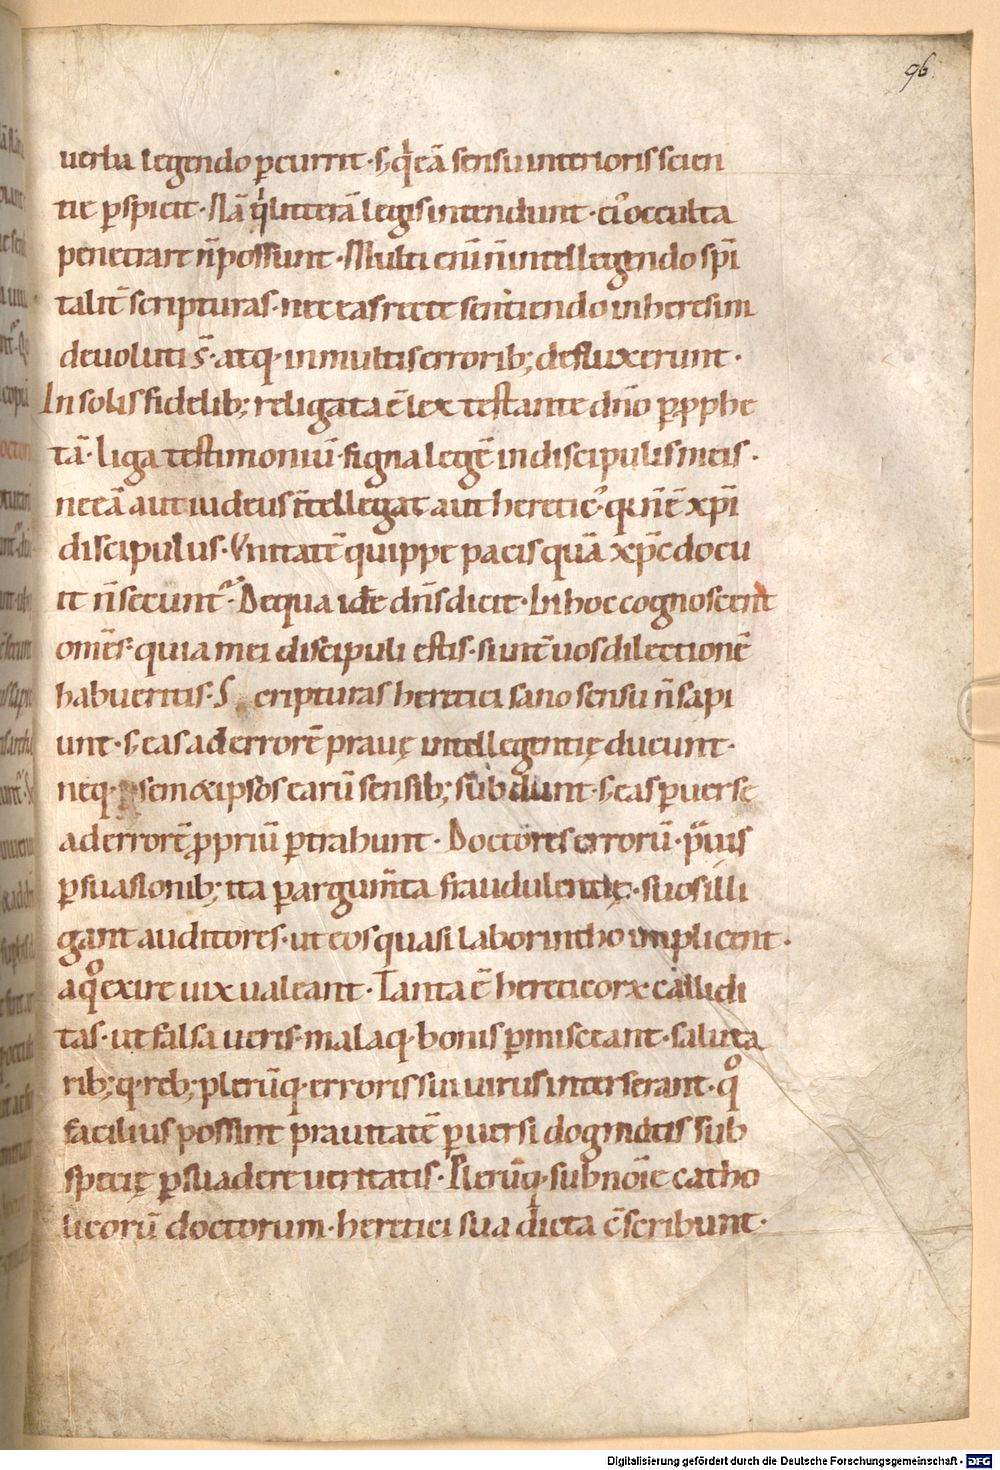 96.
uerba legendo ꝑcurrit · s; qͥ eā sensu interioris scien
tie ꝑspicit · Nā qͥ litterā legis intendunt · eiꝰ occulta
penetrare n̄ possunt · Multi eni͂ n̄ intellegendo sp̄i
talit͂ scripturas · nec eas recte sentiendo in heresim
deuoluti s̄ · atq · in multis errorib; defluxerunt ·
In solis fidelib; religata ē lex testante dn̄o ꝑ pphe
tā · liga testimoniū · signa legē in discipulis meis ·
ne eā aut iudeus īntellegat aut hereticꝰ · qi n̄ ē xp̄i
discipulus · Vnitatē quippe pacis quā xp̄c docu
it n̄ secuntᷣ · De qua idē dn̄s dicit · In hoc cognoscent
om̄es · quia mei discipuli estis · si int̄ uos dilectionē
habueritis · S cripturas heretici sano sensu n̄ sapi
unt · s; eas ad errorē prauę intellegentię ducunt ·
neq · semet ipsos earū sensib; subdunt · s; eas ꝑuerse
ad errorē ꝓpriū ꝑtrahunt · Doctores errorū · pͣuis
ꝑsuasionib; ita ꝑ argum̄ta fraudulentię · suos illi
gant auditores · ut eos quasi laborintho implicent ·
a qͦ exire uix ualeant · Tanta ē hereticoꝝ callidi
tas · ut falsa ueris · malaq · bonis ꝑmisceant · saluta
rib; q · reb; plerūq · erroris sui uirus interserant · qͦ
facilius possint prauitatē ꝑuersi dogmatis sub
specię ꝑsuadere ueritatis · Plerūq · sub nōīe catho
licorū doctorum · heretici sua dicta c̄scribunt ·
Digitalisierung gefördert durch die Deutsche Forschungsgemeinschaft - DFG